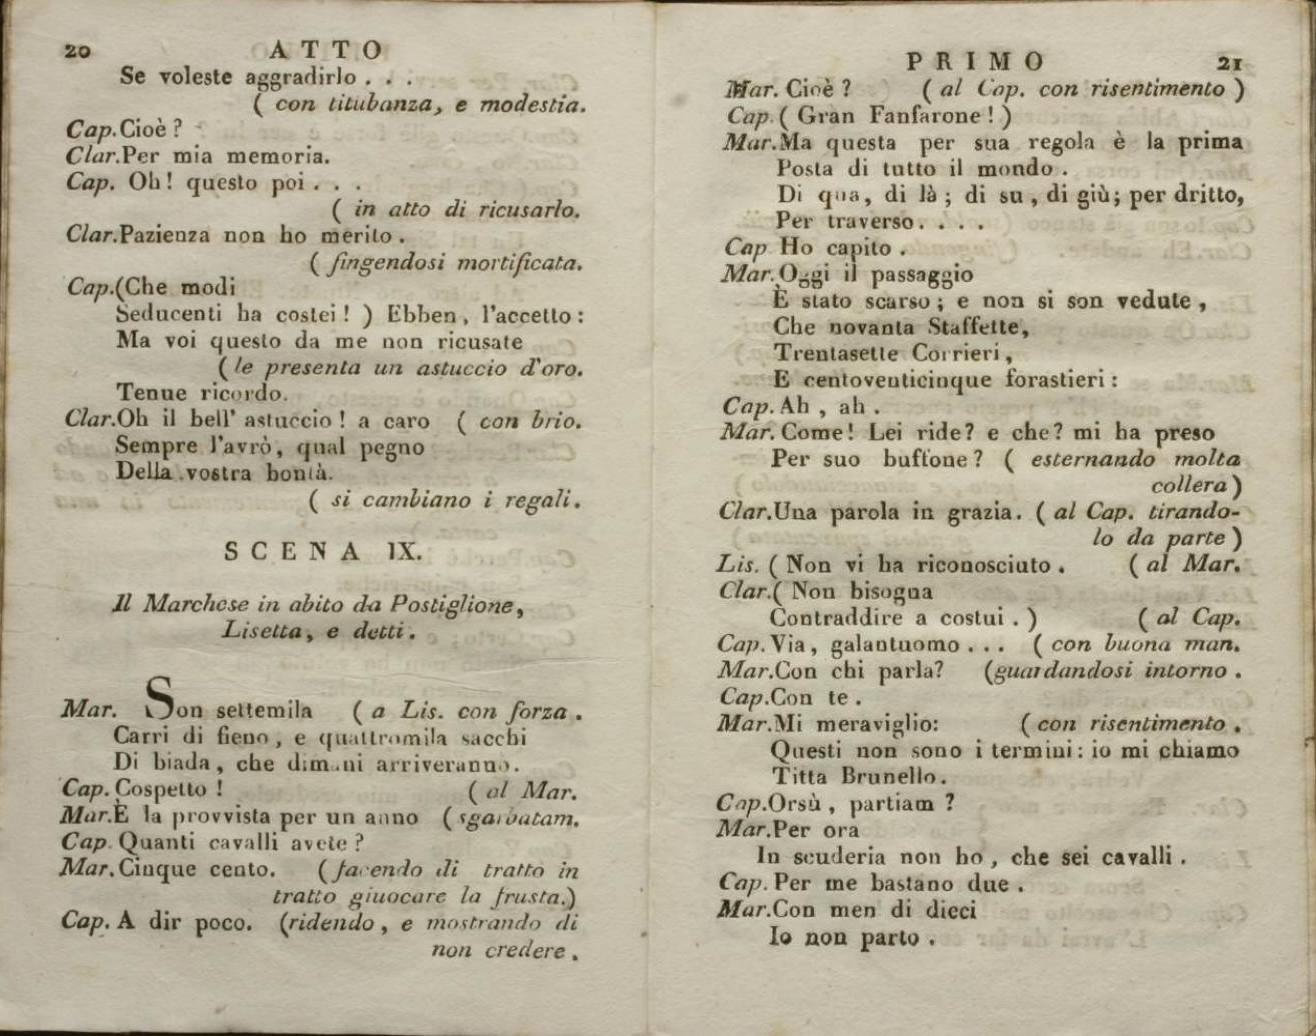 20 ATTO
Se voleste aggradirlo . . .
( con titubanza, e modestia.
Cap. Cioè ?
Clar. Per mia memoria.
Cap. Oh! questo poi . . .
( in atto di ricusarlo.
Clar. Pazienza non ho merito .
( fingendosi mortificata.
Cap. (Che modi
Seducenti ha costei ! ) Ebben , l'accetto :
Ma voi questo da me non ricusate
( le presenta un astuccio d'oro.
Tenue ricordo.
Clar. Oh il bell' astuccio ! a caro ( con brio.
Sempre l'avrò, qual pegno
Della vostra bontà.
( si cambiano i regali.
SCENA IX.
Il Marchese in abito da Postiglione,
Lisetta, e detti .
Mar. Son settemila ( a Lis. con forza .
Carri di fieno , e quattromila sacchi
Di biada , che dimani arriveranno.
Cap. Cospetto ! ( al Mar.
Mar. È la provvista per un anno ( sgarbatam.
Cap. Quanti cavalli avete ?
Mar. Cinque cento. ( facendo di tratto in
tratto giuocare la frusta.)
Cap. A dir poco. (ridendo , e mostrando di
non credere .
PRIMO 21
Mar. Cioè ? ( al Cap. con risentimento )
Cap. ( Gran Fanfarone ! )
Mar. Ma questa per sua regola è la prima
Posta di tutto il mondo .
Di qua, di là ; di su , di giù; per dritto,
Per traverso. . . .
Cap Ho capito .
Mar. Oggi il passaggio
È stato scarso ; e non si son vedute ,
Che novanta Staffette,
Trentasette Corrieri ,
E centoventicinque forastieri :
Cap. Ah , ah .
Mar. Come! Lei ride? e che? mi ha preso
Per suo buffone ? ( esternando molta
collera )
Clar. Una parola in grazia. ( al Cap. tirando-
lo da parte )
Lis. ( Non vi ha riconosciuto . ( al Mar.
Clar. ( Non bisogna
Contraddire a costui . ) ( al Cap.
Cap. Via , galantuomo . . . ( con buona man.
Mar. Con chi parla? (guardandosi intorno .
Cap. Con te .
Mar. Mi meraviglio: ( con risentimento .
Questi non sono i termini : io mi chiamo
Titta Brunello.
Cap. Orsù , partiam ?
Mar. Per ora
In scuderia non ho , che sei cavalli .
Cap. Per me bastano due .
Mar. Con men di dieci
Io non parto .